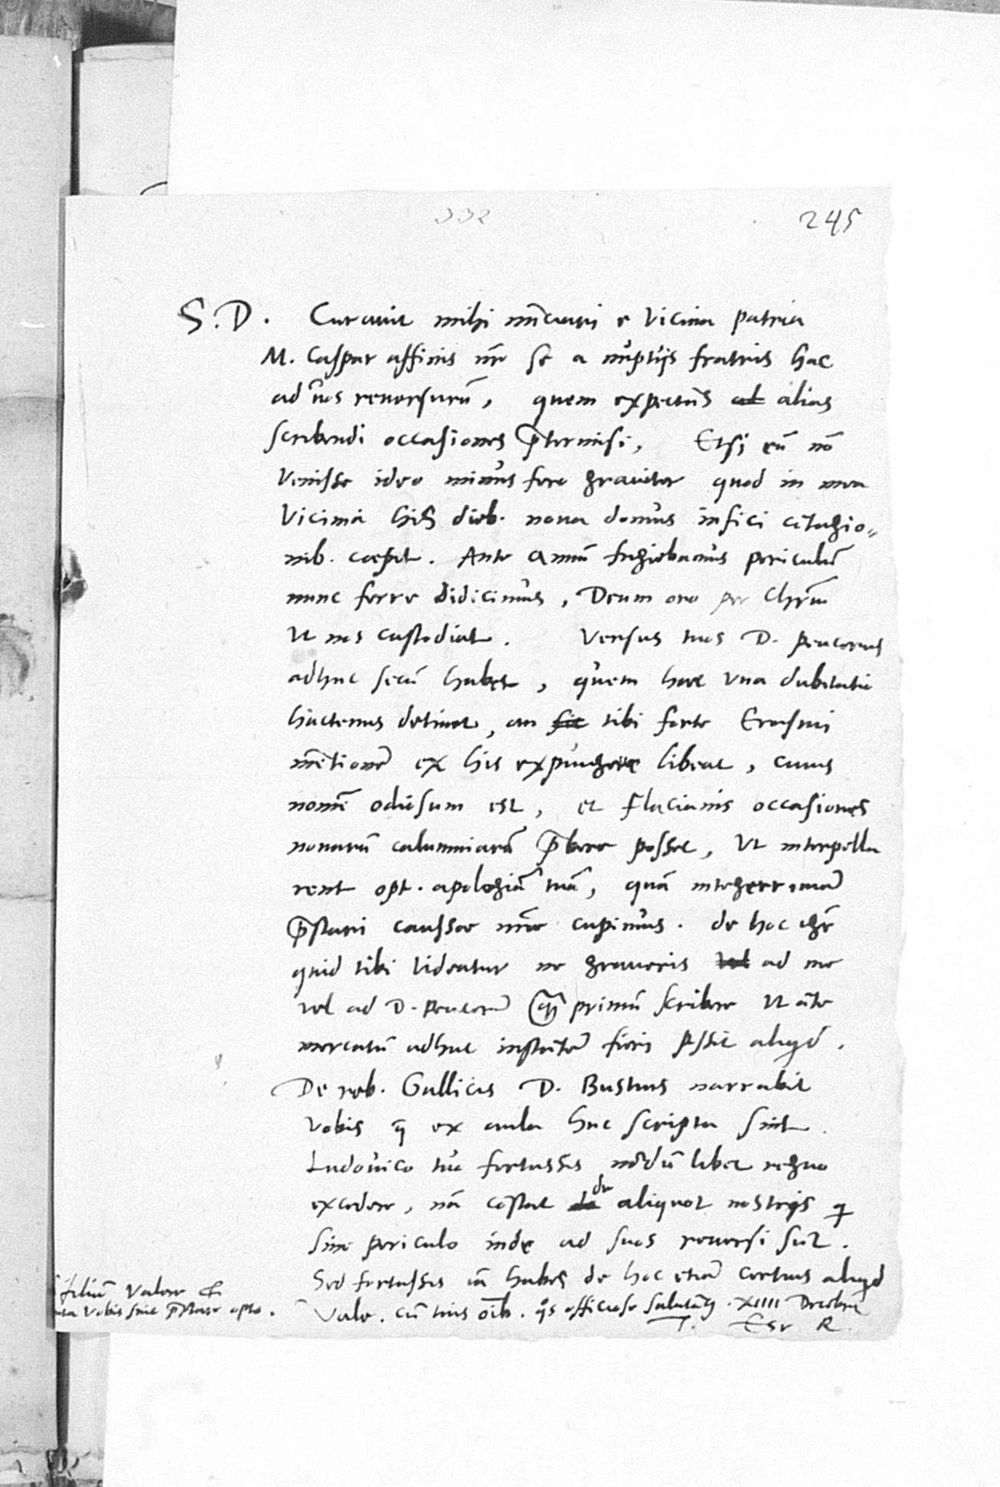 332
245
S. D. Curavit mihi nu͞ciari e vicina patria
M. Caspar affinis n͞r se a nuptijs fratris hac
ad vos reversurū, quem expecta͞s alias
scribendi occasiones p͞termisi, Etsi eū nō
venisse ideo minus fero graviter quod in mea
vicinia his dieb. nova domus infici co͞tagio=
nib. coepit. Ante annū fugiebamus periculū
nunc ferre didicimus, Deum oro per Chr͞m
ut nos custodiat. Versus tuos D. Peucerus
adhuc secū habet, quem haec una dubitatio
hactenus detinet, an tibi forte Erasmi
me͞tione͞ ex his expungere libeat, cuius
nome͞ odiosum est, et Flacianis occasiones
novarū calumniarū p͞bere posset, ut interpella
rent opt. apologiā tuā, quā integerrimā
p͞stari caussae n͞rae cupimus. de hoc igr͞
quid tibi videatur ne graveris ad me
vel ad D. Peucerū qua͞ primū scribere ut a͞te
mercatū adhuc insta͞te͞ fieri possit aliqd.
De reb. Gallicis D. Bustius narrabit
vobis q̄ ex aula huc scripta sint.
Ludovico tuo fortassis no͞dū libet regno
excedere, nā co͞stat de aliquot nostris q
sine periculo inde ad suos reversi su͞t.
Sed fortassis ia͞ habes de hoc etia͞ certius aliqd
Vale. cū tuis o͞ib. q͞s officiose saluta͞. XIIII Decobr͞
T. Esr R.
filiū valere &
vobis sint p͞stare opto.